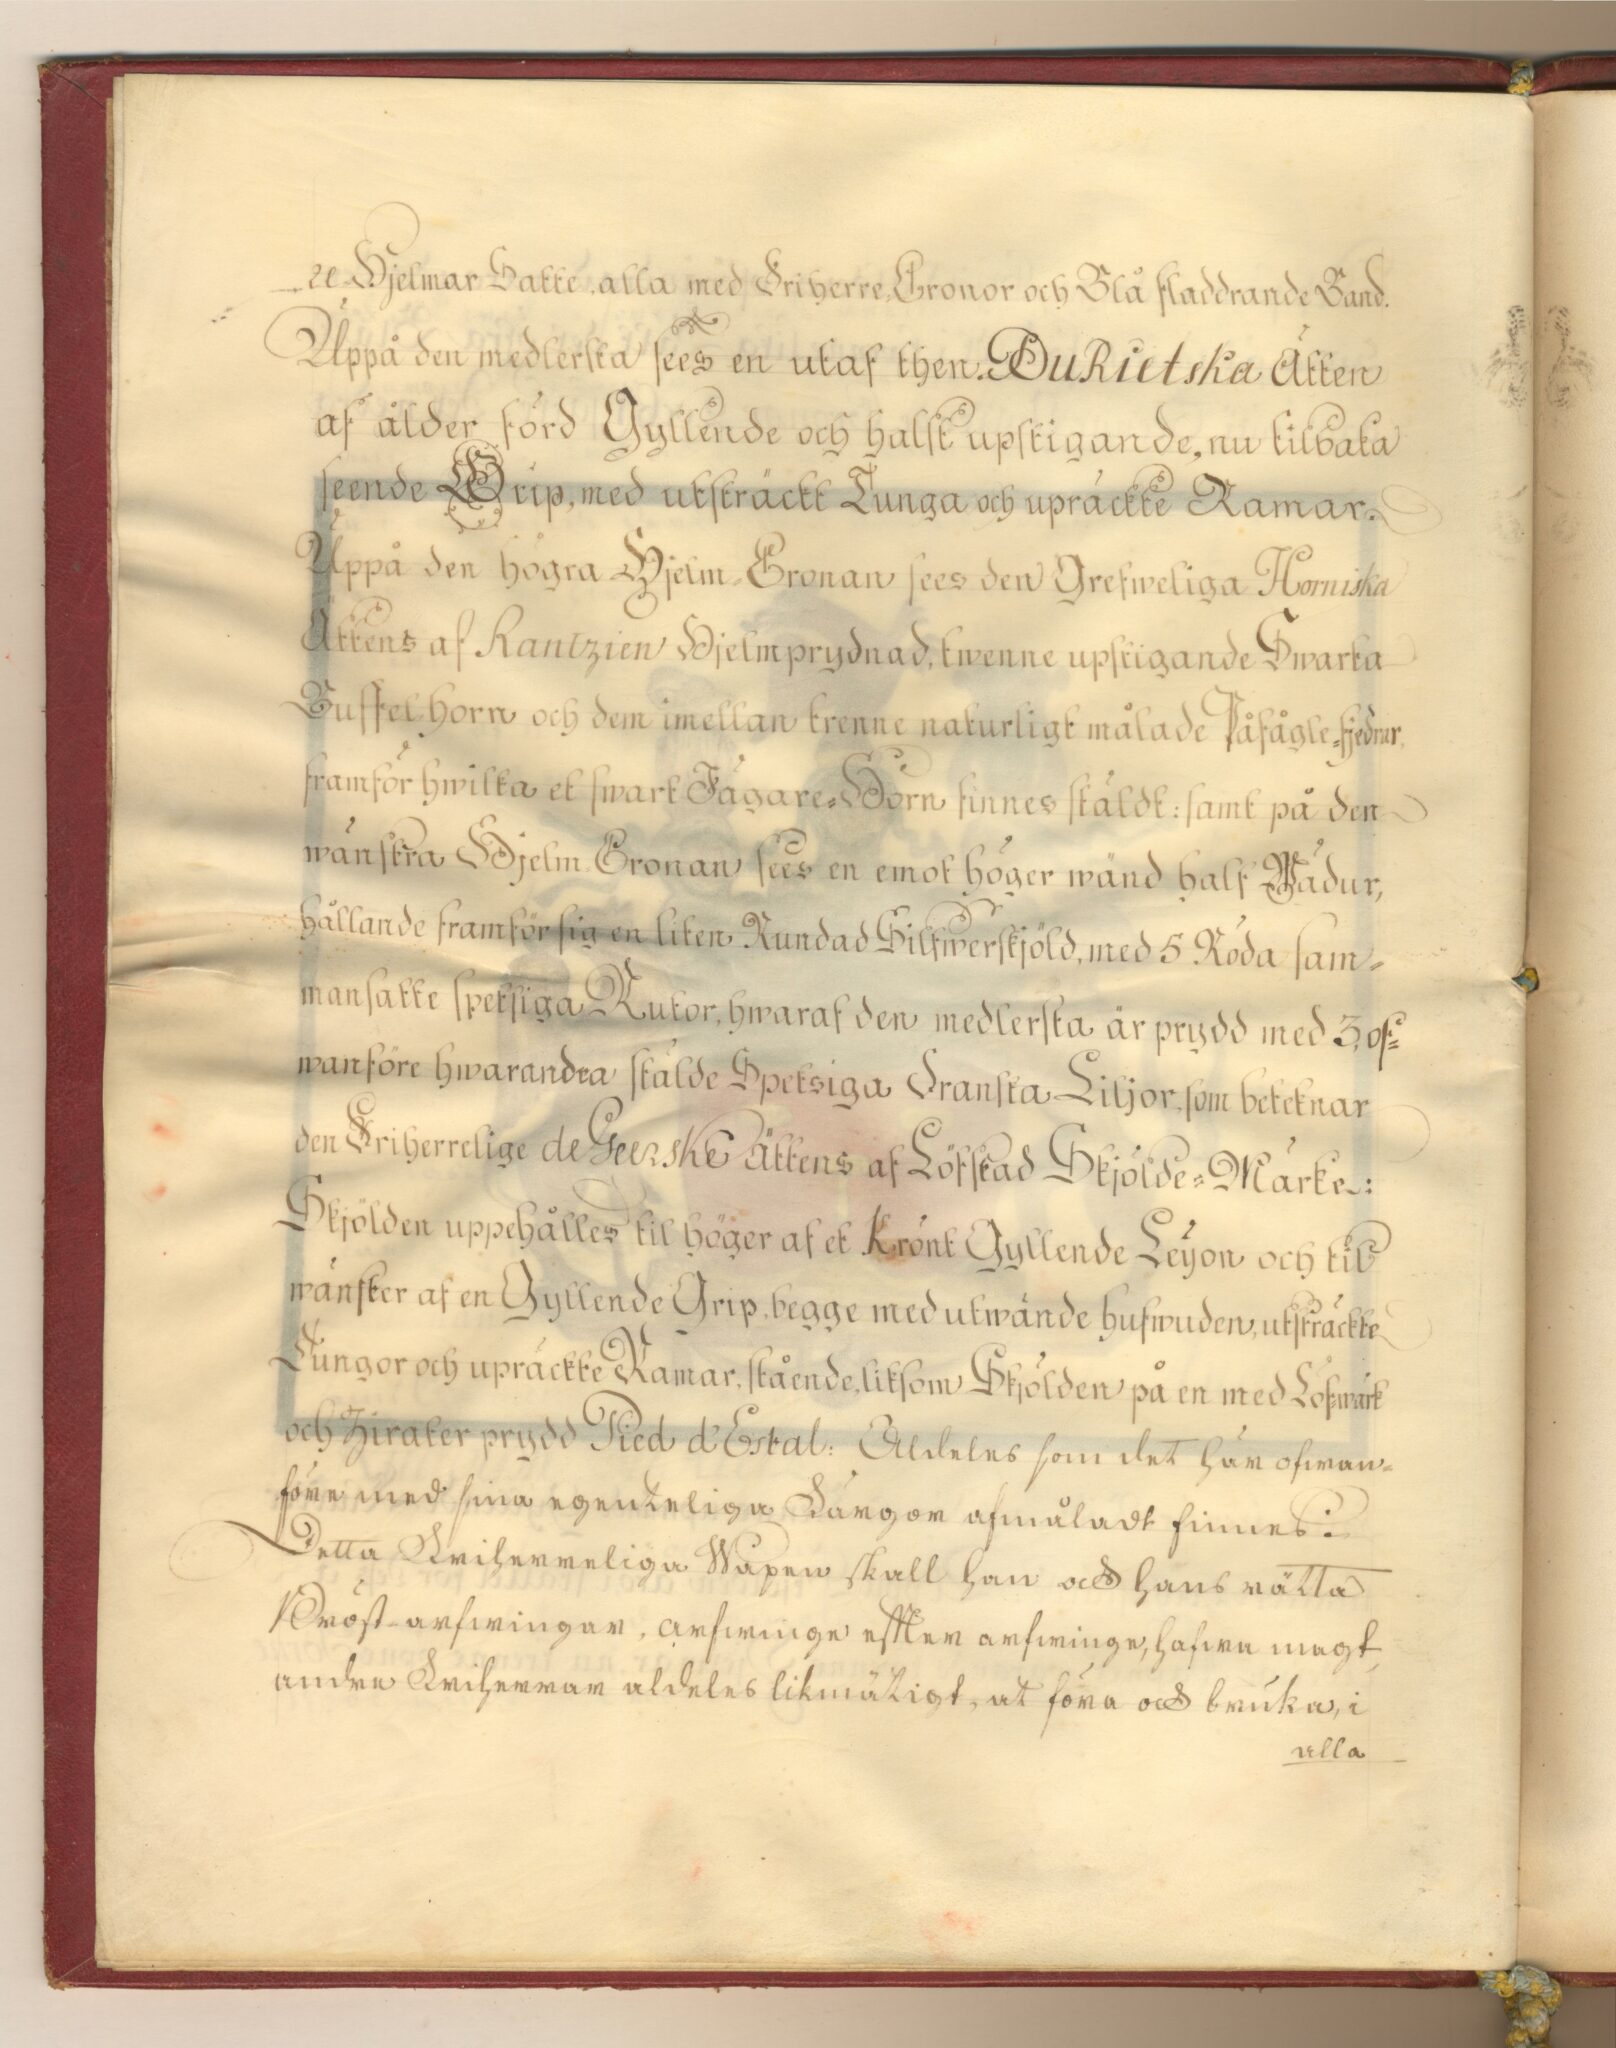 re Hjelmar Satte, alla med Friherre-Cronor och Blå fladdrande Band.
Uppå den medlersta sees en utaf then DuRietska Ätten
af ålder förd Gyllende och halft upstigande, nu tilbaka
seende Grip, med utsträckt Tunga och upräckte Ramar.
Uppå den högra Hjelm-Cronan sees den Grefweliga Horniska
Ättens af Rantzien Hjelmprydnad, twenne upstigande Swarta
Buffel horn och dem imellan trenne naturligt målade Påfågle-fjedrar,
framför hwilka et swart Jägare-Horn finnes stäldt: samt på den
wänstra Hjelm Cronan sees en emot höger wänd half Wädur,
hållande framför sig en liten Rundad Silfwerskjöld, med 5 Röda sam-
mansatte spetsiga Rutor, hwaraf den medlersta är prydd med 3, of-
wanföre hwarandra stälde Spetsiga Franska Liljor, som beteknar
den Friherrelige de Geerske Ättens af Löfstad Skjölde-Märke:
Skjölden uppehålles til höger af et Krönt Gyllende Leyon och til
wänster af en Gyllende Grip, begge med utwände hufwuden, utsträckte
Tungor och upräckte Ramar, stående, liksom Skjölden på en med Löfwärk
och Zirater prydd Pied d'Estal: Aldeles som det här ofwan-
före med sina egenteliga Färgor afmåladt finnes:
Detta Friherreliga Wapen skall han och hans rätta
Bröst-arfwingar, arfwinge effter arfwinge, hafwa magt
andra Friherrar aldeles likmätigt, at föra och bruka, i
alla